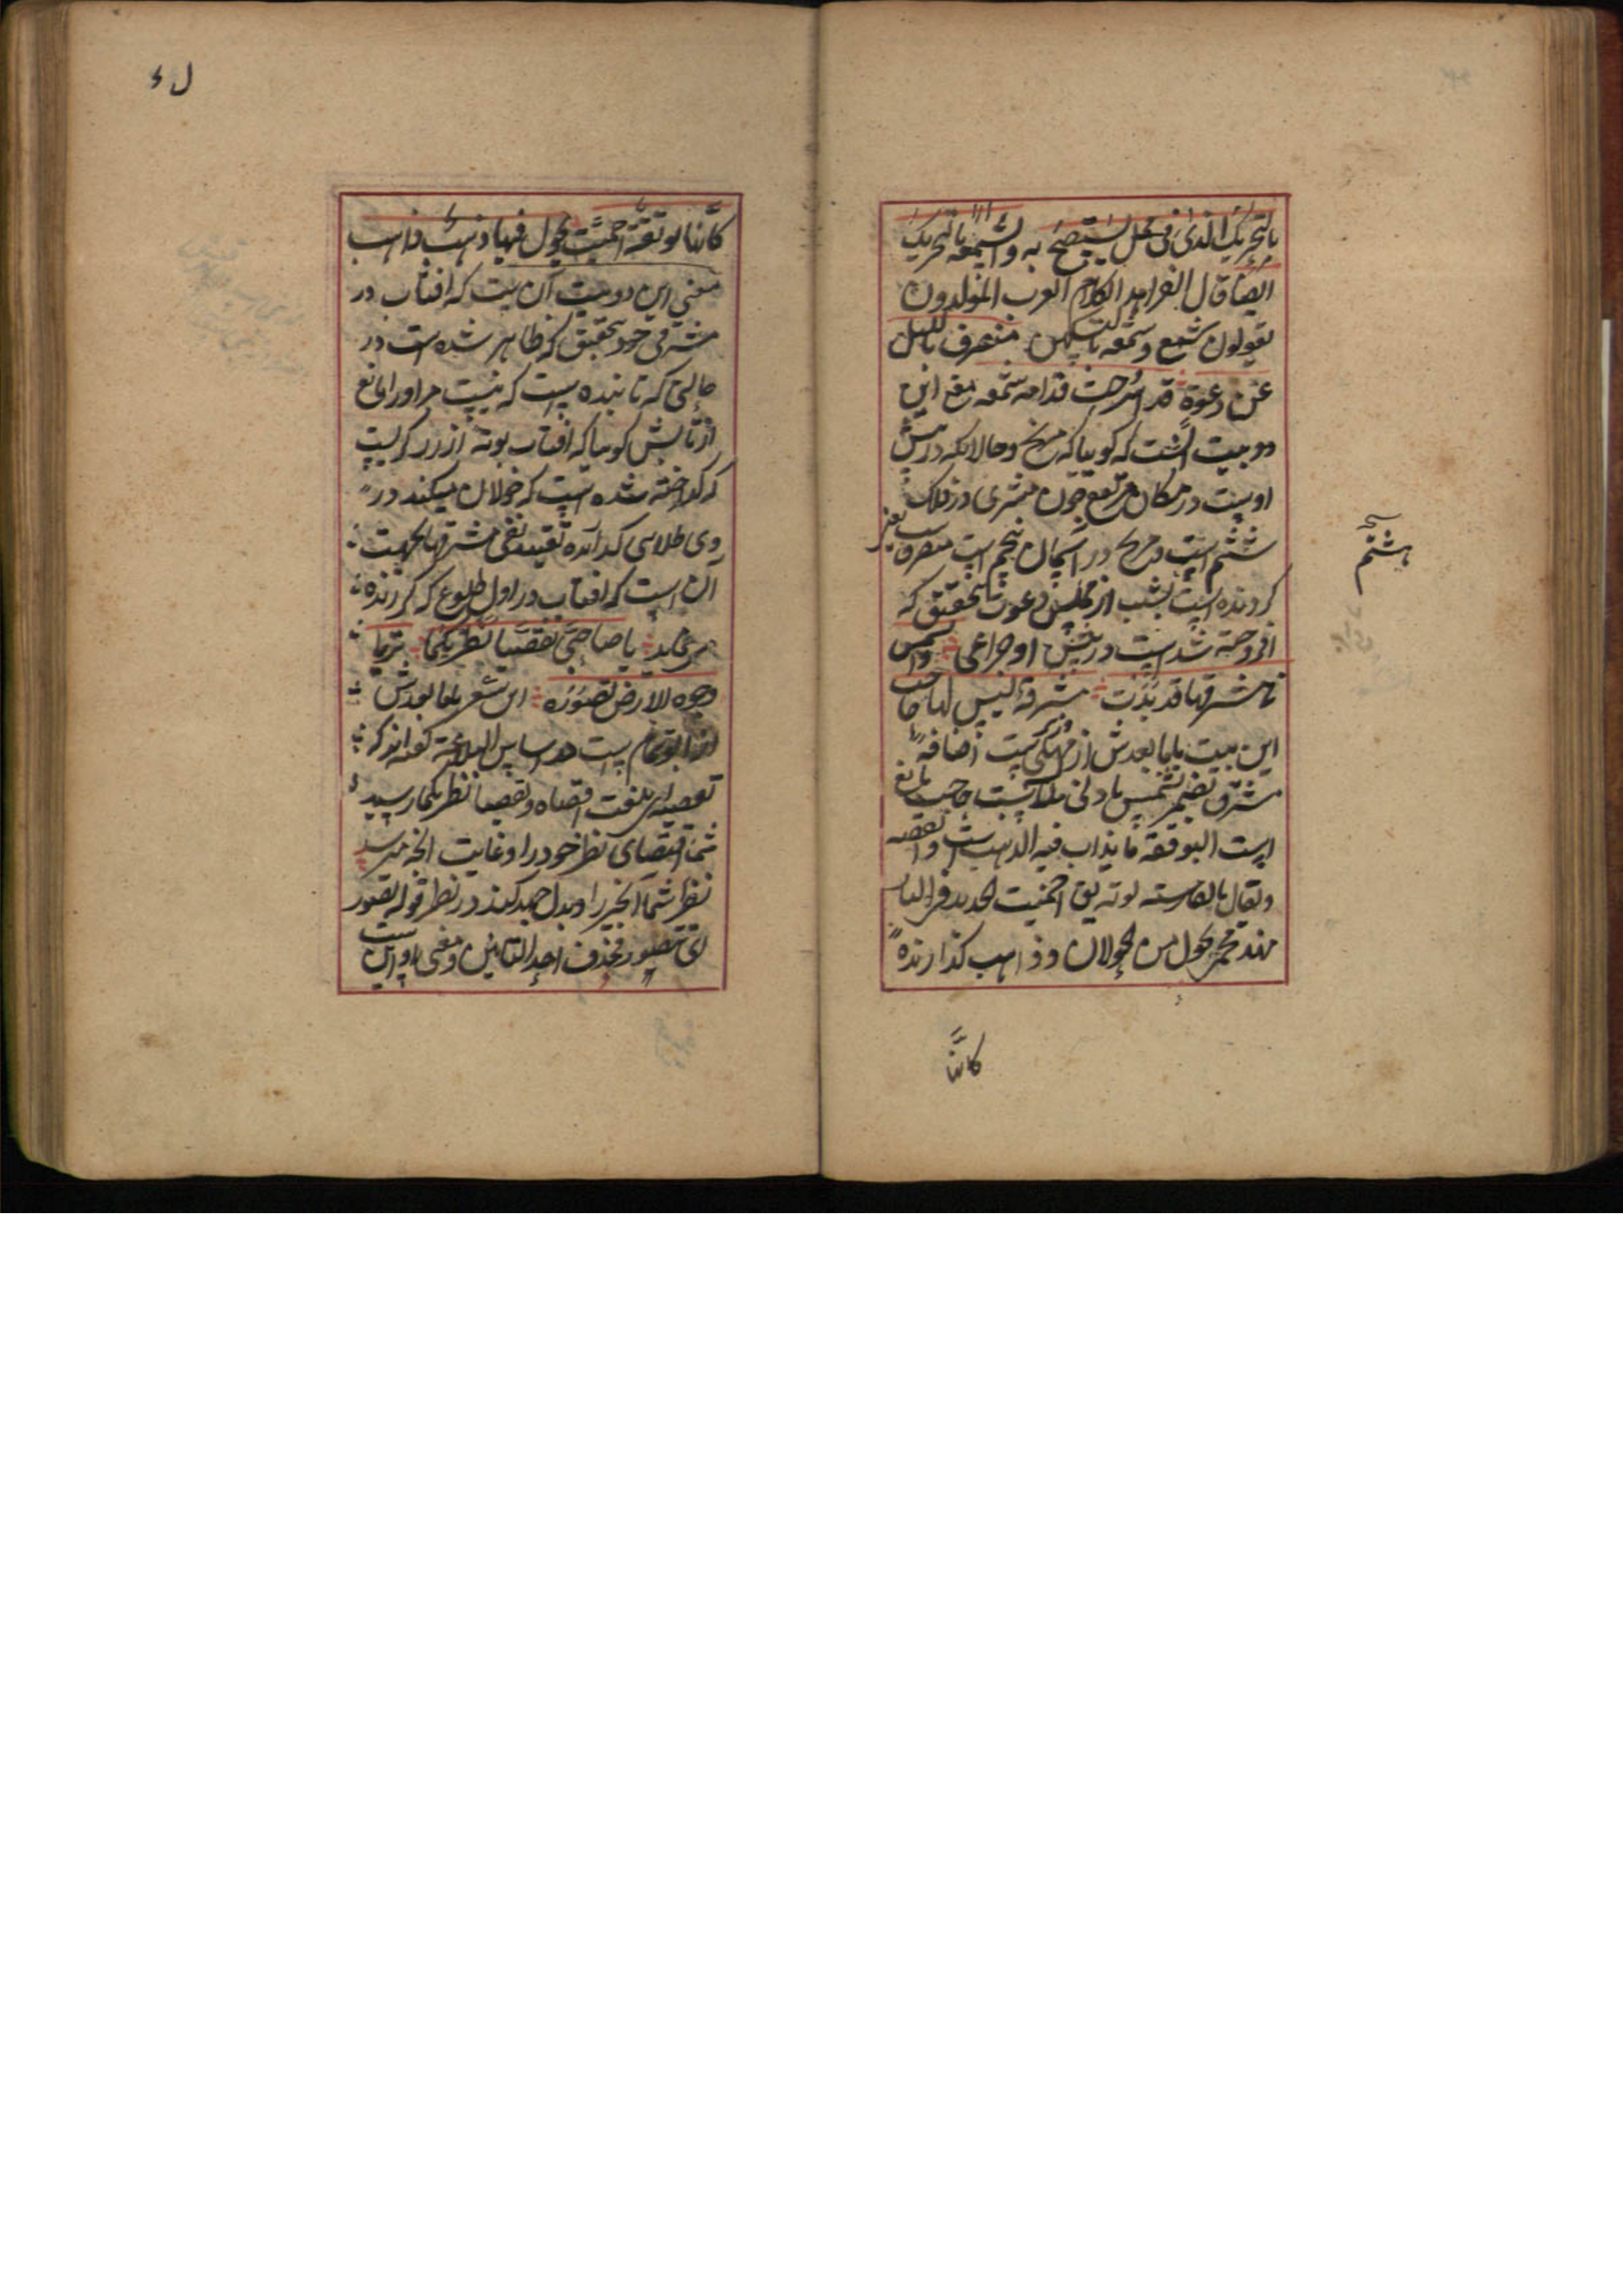 بالتحریک الذی فی محل یستصبح به والشمعه بالتحریک
ایضا قال الفرا هذا کلام العرب المولدون
یقولون شمع وشمعه بالتسکین منصرف باللیل
عن دعوة قد اسرجت قدامه شمعه معنی این
دو بیت آنست که کویا که مریخ وحالانکه در پیش
اوست در مکان مرتفع چون مشتری در فلک
ششم است ومریخ در آسمان پنجم است منصرف
کردنده است بشب از مجلس دعوت بتحقیق که
افروخته شده است در پیش او چراغی والشمس
من مشرقها قد بدت مشرقة لیس لها حاجب
این بیت با ما بعدش از است اضافه
مشرق بضمیر شمس بادنی ملابست حاجب مانع
است البوتقة ما یذاب فیه الذهب والفضه
ویقال بالفارسته بوته احمیت الحدید فی النار
یجول من الجولان وذاهب کدازنده
هشتم
کانها
ل ء
کانها بوتقة احمیت یجول فیها ذهب ذاهب
معنی این دو بیت آن است که افتاب در
مشرق خود بتحقیق که ظاهر شده است در
حالتی که تابنده است که نیست مر او را مانع
از تابش کویا که افتاب بوته از زر است
که کداخته شده است که جولان میکند در
وی طلای کدازنده تقیید بقی مشرقها بجهت
آن است که افتاب در اول طلوع که لرزنده
می نماید یا صاحبی تقصیا نظریکما تریا
وجوه الارض تصور این شعر با ما بعدش
از ابو تمام است در اساس البلاغة کفته اند که
تقصیته ای بلغت اقصاه وتقصیا نظریکما رسید
شما اقتصای نظر خود را وغایت آنچه میرسد
نظر شما آنچیز را وبذل جهد کنید در نظر قوله تصور
ای تتصور بحذف احد التائین ومعنی او این است